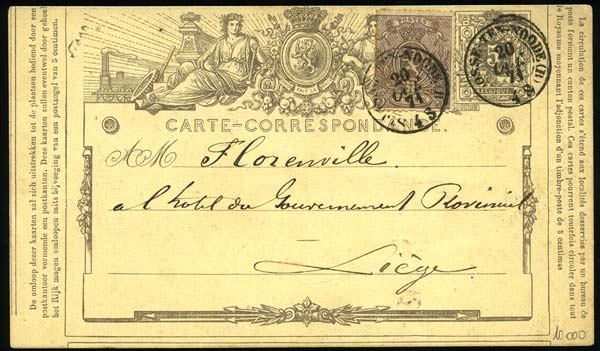 CARTE-CORRESPONDANCE.
A M Florenville
a l'hotel du Gouvernement Provincial
Liège
ST JOSSE-TEN-NOODE (B)
20
OCT
71
4-S
5
BELGIQUE
ST JOSSE-TEN-NOODE (B)
20
OCT
71
4-S
De omloop dezer kaarten zal zich uitstrekken tot de plaatsen bediend door een
postkantoor vormende een postkanton. Deze kaarten zullen evenwel door geheel
het Rijk mogen omloopen mits bijvoeging van een postzegel van 5 centimen.
La circulation de ces cartes s'étend aux localités desservies par un bureau de
poste formant un canton postal. Ces cartes pourront toutefois circuler dans tout
le Royaume moyennant l'adjonction d'un timbre-poste de 5 centimes
10.000